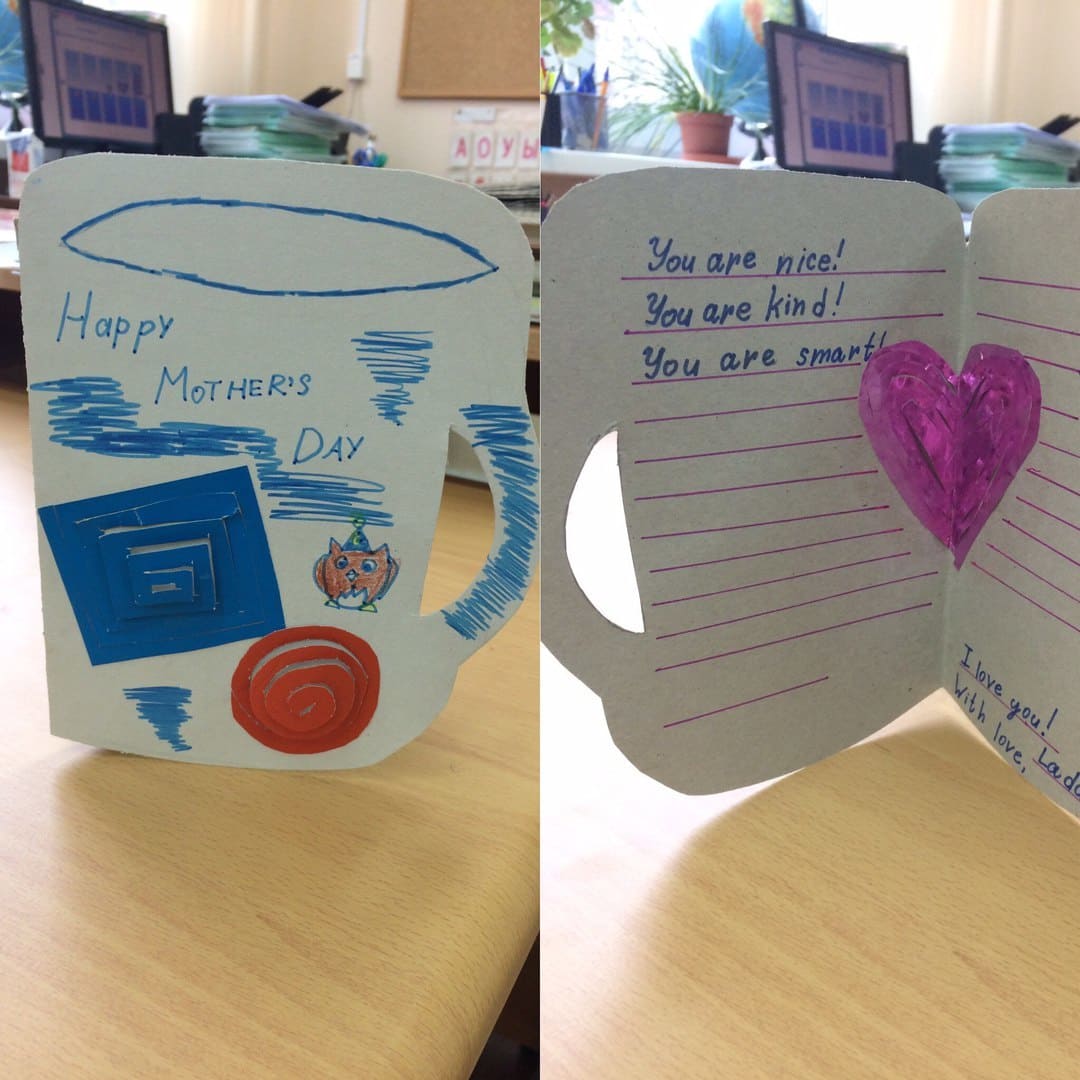 А О У Ы
Happy
Mother's
Day
You are nice!
You are kind!
You are smart!
I love you!
With love,